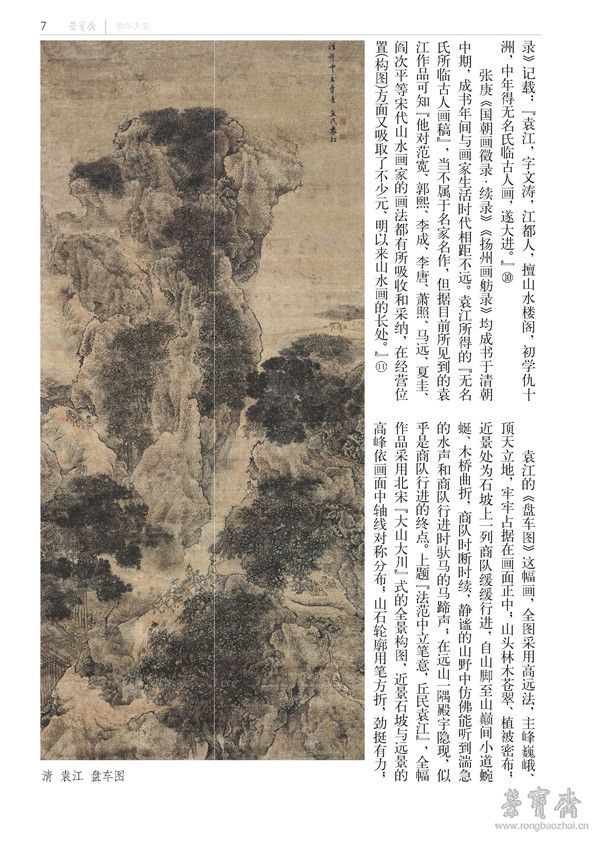 7 荣宝斋 物华天宝
录》记载：『袁江，字文涛，江都人，擅山水楼阁，初学仇十
洲，中年得无名氏临古人画，遂大进。』⑩
张庚《国朝画徵录·续录》《扬州画舫录》均成书于清朝
中期，成书年间与画家生活时代相距不远。袁江所得的『无名
氏所临古人画稿』，当不属于名家名作，但据目前所见到的袁
江作品可知『他对范宽、郭熙、李成、李唐、萧照、马远、夏圭、
阎次平等宋代山水画家的画法都有所吸收和采纳，在经营位
置(构图)方面又吸取了不少元、明以来山水画的长处。』⑪
袁江的《盘车图》这幅画，全图采用高远法，主峰巍峨、
顶天立地，牢牢占据在画面正中，山头林木苍翠、植被密布；
近景处为石坡上一列商队缓缓行进，自山脚至山巅间小道蜿
蜒、木桥曲折，商队时断时续，静谧的山野中仿佛能听到湍急
的水声和商队行进时驮马的马蹄声；在远山一隅殿宇隐现，似
乎是商队行进的终点。上题『法范中立笔意，丘民袁江』，全幅
作品采用北宋『大山大川』式的全景构图，近景石坡与远景的
高峰依画面中轴线对称分布；山石轮廓用笔方折，劲挺有力；
法范中立笔意 丘民袁江
清 袁江 盘车图
荣宝斋
www.rongbaozhai.cn